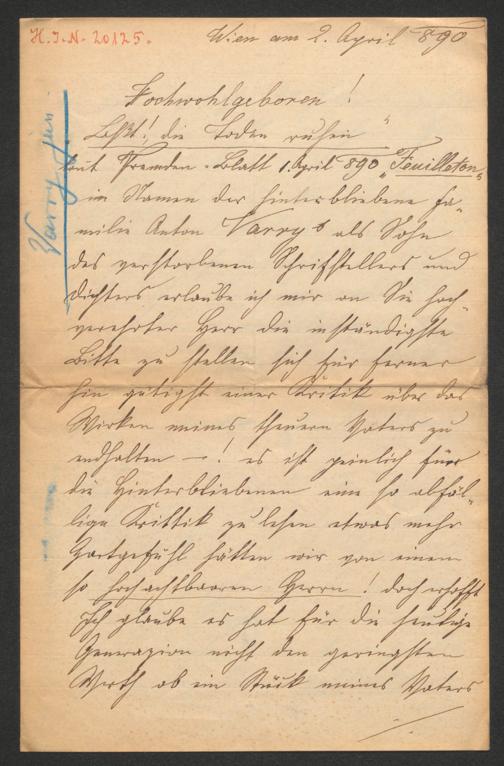 H.I.N. 20125.
Wien am 2. April 890
Hochwohlgeboren!
Laßt! die Toden ruhen"
laut Fremden-Blatt 1. April 890 „Feuilleton"
im Namen der hinterbliebene Fa-
milie Anton Varry's als Sohn
des verstorbenen Schriftstellers und
Dichters erlaube ich mir an Sie hoch-
verehrter Herr die inständigste
Bitte zu stellen sich für ferner
hin gütigst einer Kritik über das
Wirken meines theuern Vaters zu
endhalten —! es ist peinlich für
die Hinterbliebenen eine so abfäl-
lige Krittik zu lesen etwas mehr
Zartgefühl hätten wir von einem
so hochachtbaaren Herrn! doch erhofft
Ich glaube es hat für die heutige
Generazion nicht den geringsten
Werth ob ein Stück meines Vaters
Varry jun.